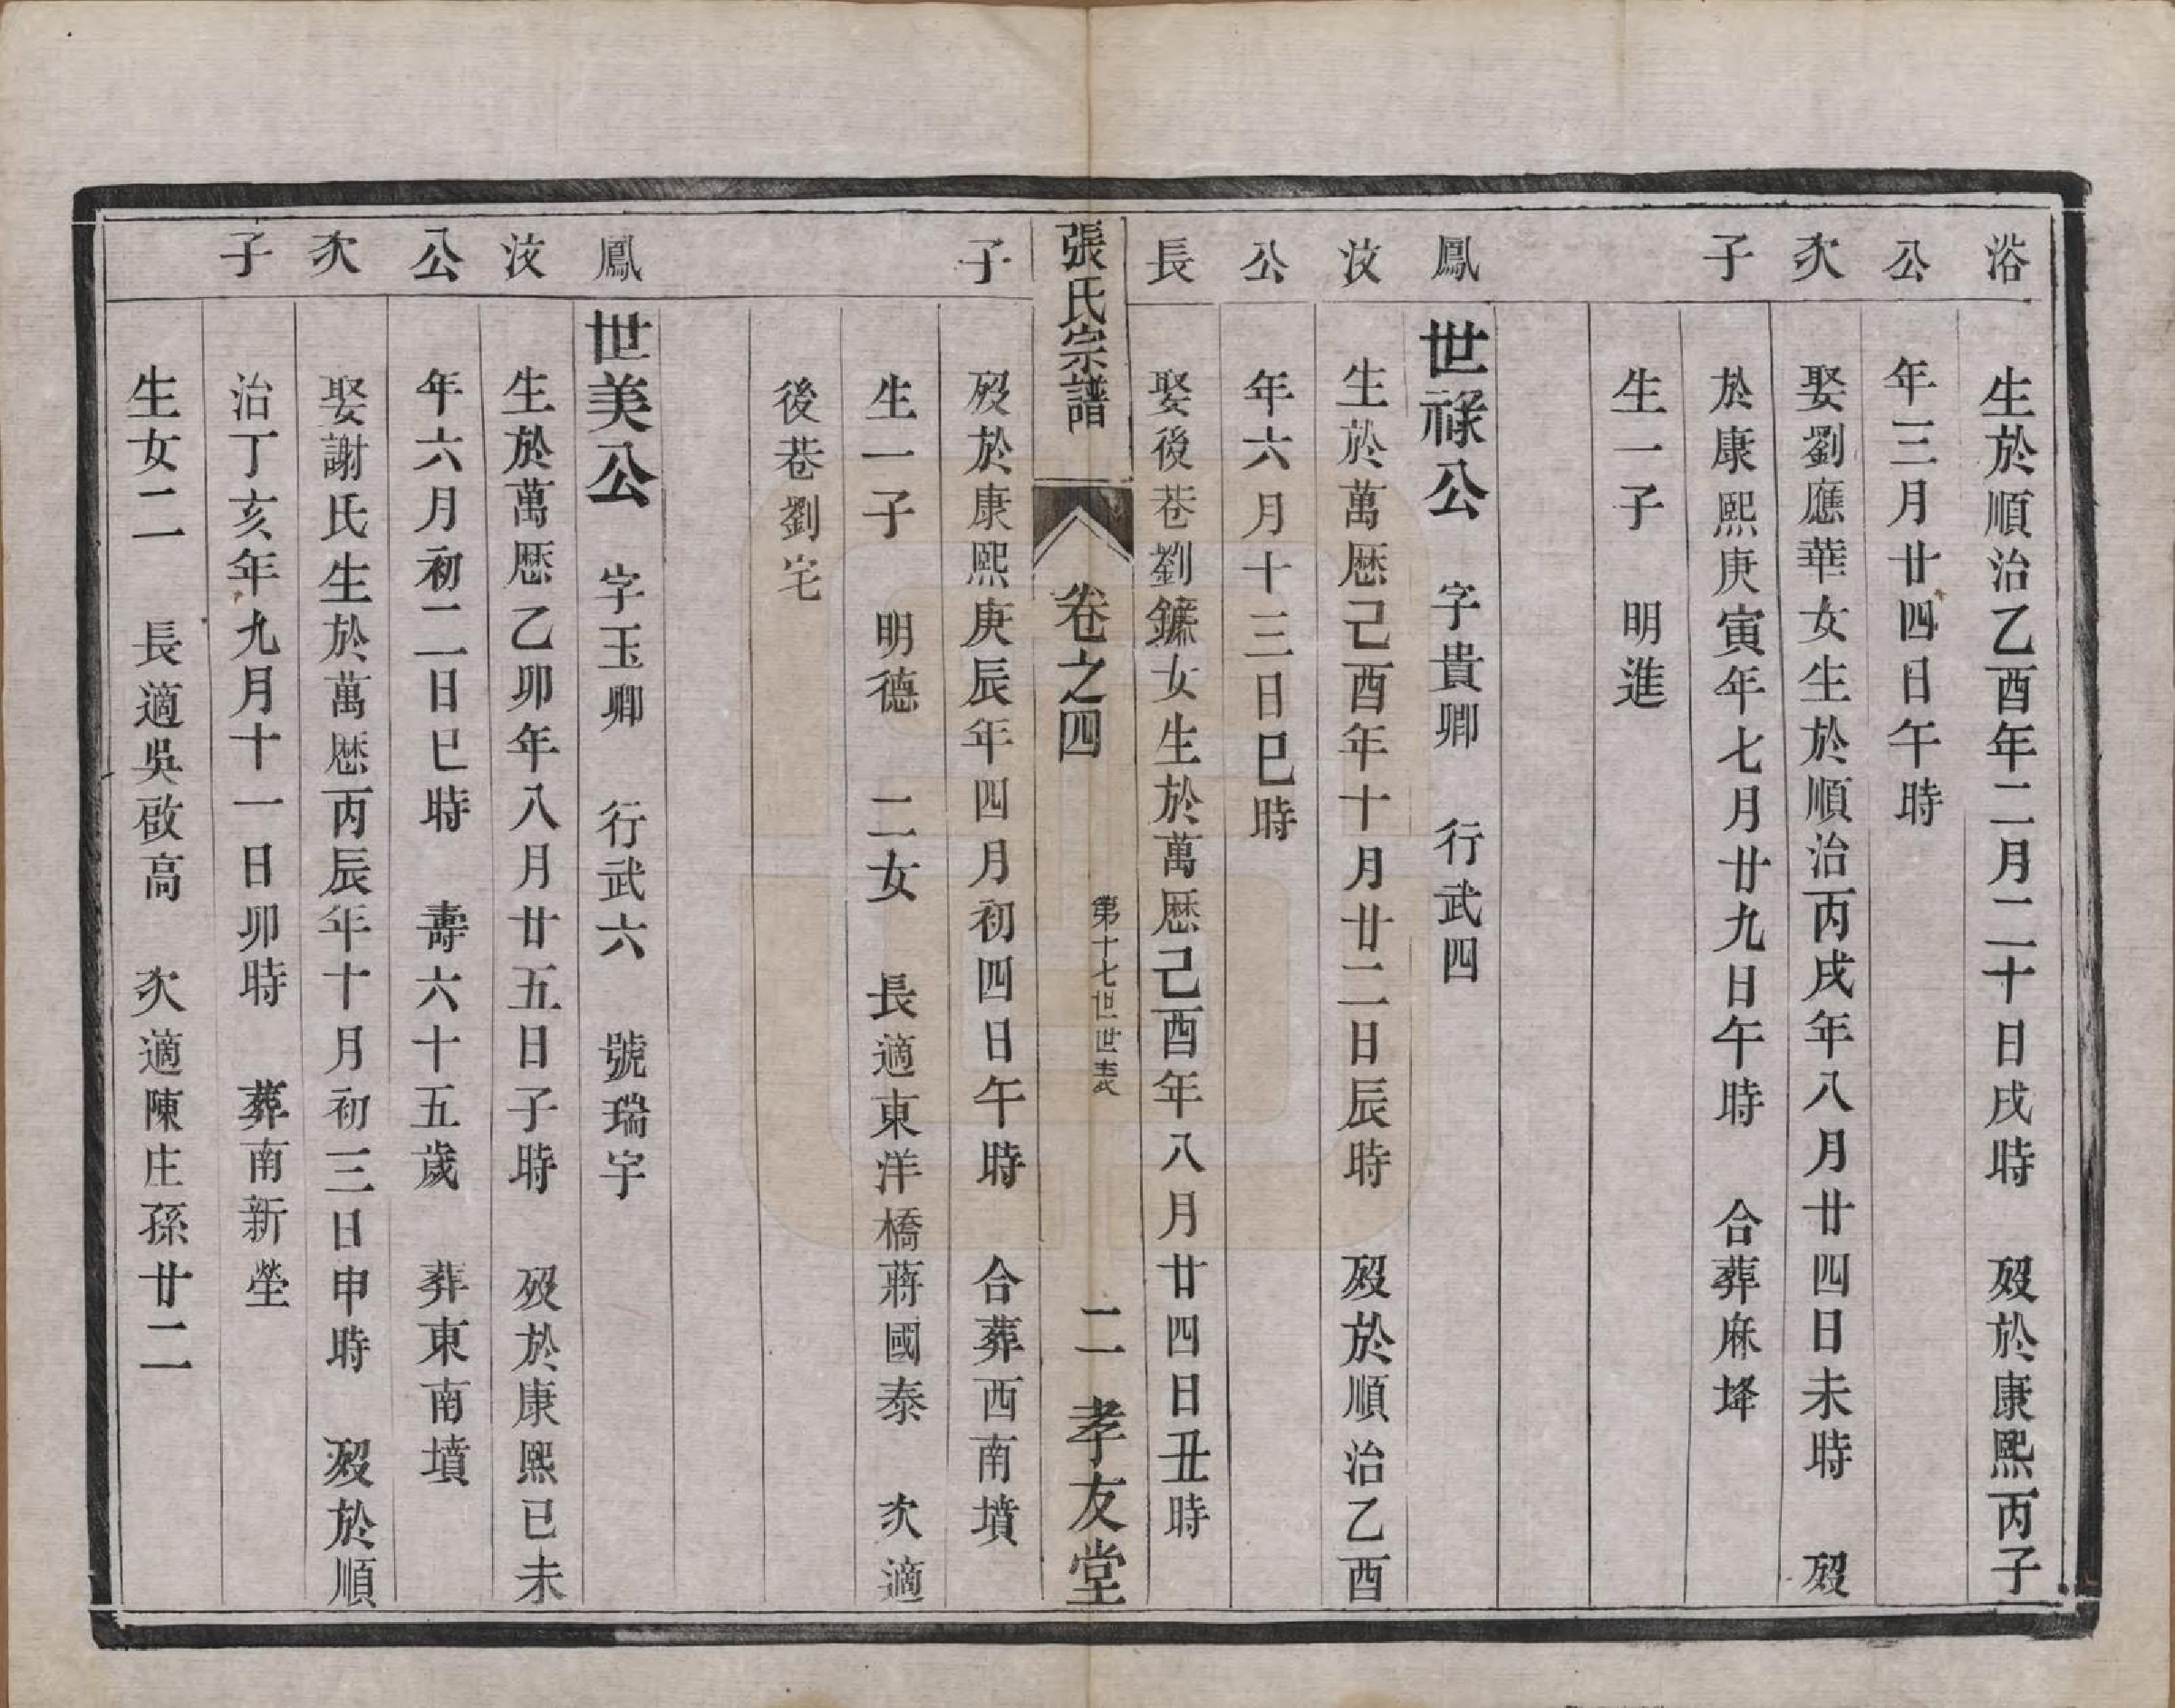 浴　生於順治乙酉年二月二十日戌時　歿於康熙丙子
公　年三月廿四日午時
次　娶劉應華女生於順治丙戌年八月廿四日未時　歿
子　於康熙庚寅年七月廿九日午時　合葬麻垾
生一子　明進
鳳　世祿公　字貴卿　行武四
汝　生於萬歷己酉年十月廿二日辰時　歿於順治乙酉
公　年六月十三日巳時
長　娶後巷劉鑣女生於萬歷己酉年八月廿四日丑時
張氏宗譜　卷之四　第十七世世表　二　孝友堂
子　歿於康熙庚辰年四月初四日午時　合葬西南墳
生一子　明德　二女　長適東洋橋蔣國泰　次適
後巷劉宅
鳳　世美公　字玉卿　行武六　號瑞宇
汝　生於萬歷乙卯年八月廿五日子時　歿於康熙己未
公　年六月初二日巳時　壽六十五歲　葬東南墳
次　娶謝氏生於萬歷丙辰年十月初三日申時　歿於順
子　治丁亥年九月十一日卯時　葬南新塋
生女二　長適吳啟高　次適陳庄孫廿二